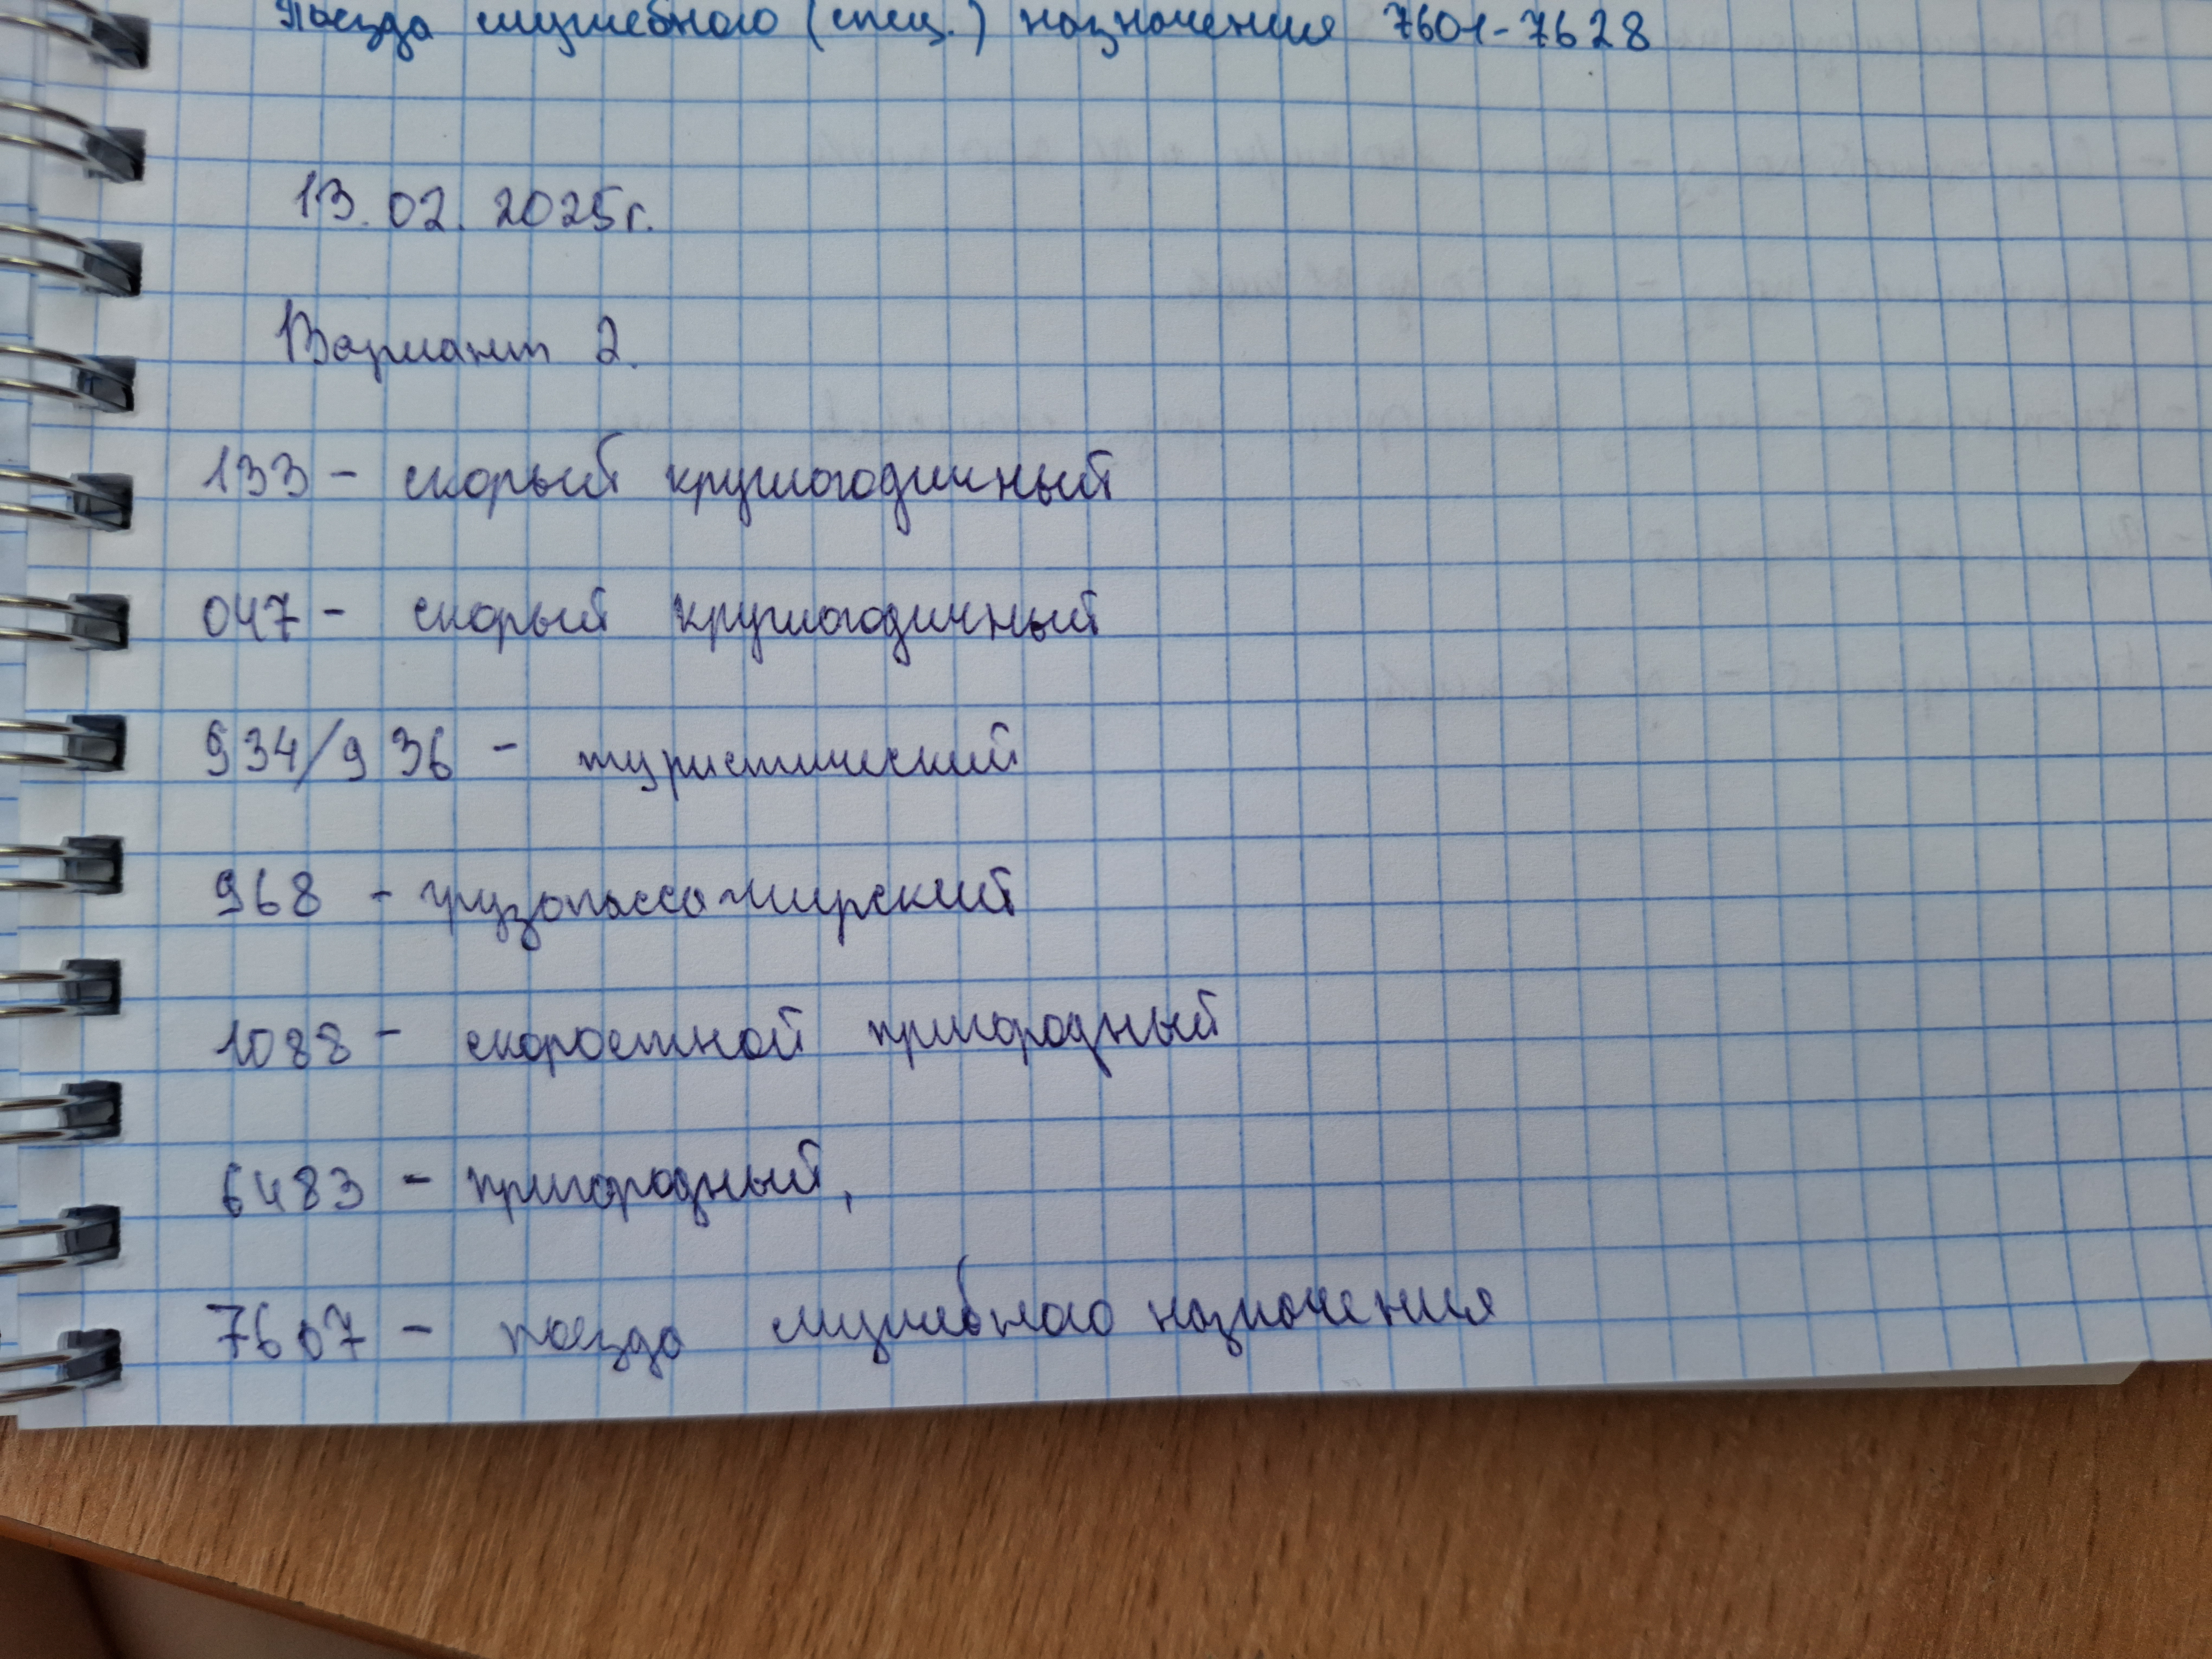 Поезда служебного (спец.) назначения 7601-7628
13.02.2025г.
Вариант 2.
133 - скорый круглогодичный
047 - скорый круглогодичный
934/936 - туристический
968 - грузопассажирский
1088 - скоростной пригородный
6483 - пригородный,
7607 - поезда служебного назначения